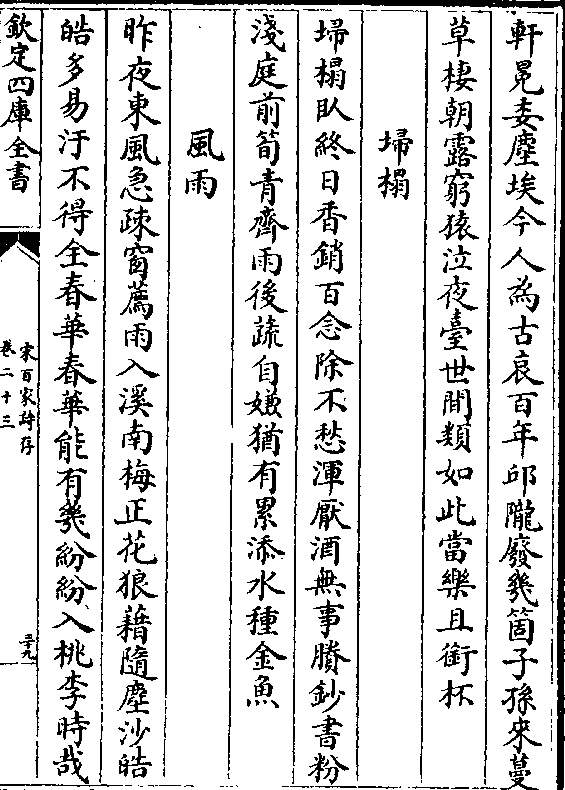 軒冕委塵埃今人為古哀百年邱隴廢幾箇子孫來蔓
草棲朝露窮猿泣夜臺世間類如此當樂且銜杯
埽榻
埽榻臥終日香銷百念除不愁渾厭酒無事賸鈔書粉
淺庭前筍青齊雨後蔬自嫌猶有累添水種金魚
風雨
昨夜東風急疎窗薦雨入溪南梅正花狼藉隨塵沙皓
皓多易汙不得全春華春華能有幾紛紛入桃李時哉
欽定四庫全書
宋百家詩存
卷二十三
三九